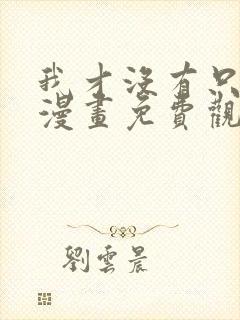 我才沒有只
漫畫免費觀
劉雲晨